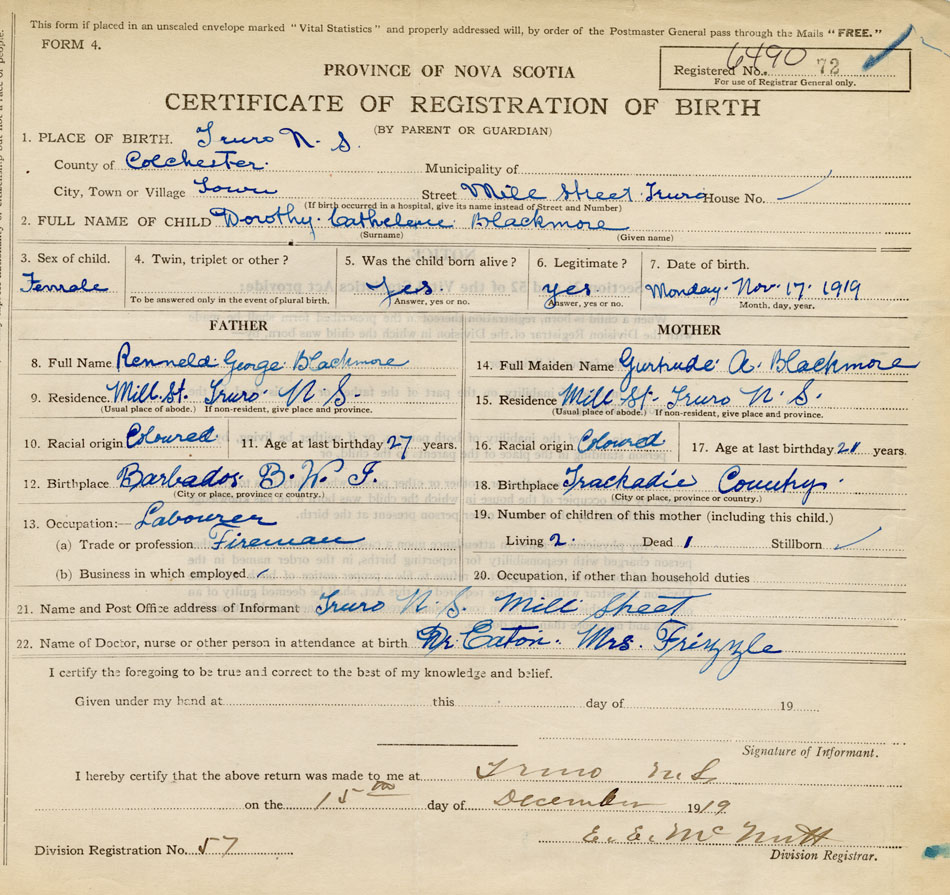 This form if placed in an unsealed envelope marked "Vital Statistics" and properly addressed will, by order of the Postmaster General pass through the Mails "FREE."
FORM 4.
Registered No. 6490 72
For use of Registrar General only.
PROVINCE OF NOVA SCOTIA
CERTIFICATE OF REGISTRATION OF BIRTH
(BY PARENT OR GUARDIAN)
1. PLACE OF BIRTH. Truro N. S.
County of Colchester. Municipality of
City, Town or Village Town Street Mill Street Truro House No.
(If birth occurred in a hospital, give its name instead of Street and Number)
2. FULL NAME OF CHILD Dorothy Cathelene Blackmore
(Surname) (Given name)
3. Sex of child. 4. Twin, triplet or other? 5. Was the child born alive? 6. Legitimate? 7. Date of birth.
Female yes yes Monday Nov. 17 1919
To be answered only in the event of plural birth. Answer, yes or no. Answer, yes or no. Month, day, year.
FATHER MOTHER
8. Full Name Renneld George Blackmore 14. Full Maiden Name Gurtrude A. Blackmore
9. Residence. Mill St. Truro N S. 15. Residence Mill St. Truro N. S.
(Usual place of abode.) If non-resident, give place and province. (Usual place of abode.) If non-resident, give place and province.
10. Racial origin Coloured 11. Age at last birthday 27 years. 16. Racial origin Coloured 17. Age at last birthday years.
12. Birthplace Barbados B. W. I. 18. Birthplace Trackadie Country
(City or place, province or country.) (City or place, province or country.)
13. Occupation:— Labourer 19. Number of children of this mother (including this child.)
(a) Trade or profession Fireman Living 2. Dead 1 Stillborn
(b) Business in which employed 20. Occupation, if other than household duties
21. Name and Post Office address of Informant Truro N. S. Mill Street
22. Name of Doctor, nurse or other person in attendance at birth Dr. Eaton. Mrs. Frizzle
I certify the foregoing to be true and correct to the best of my knowledge and belief.
Given under my hand at this day of 19
Signature of Informant.
I hereby certify that the above return was made to me at Truro N.S.
on the 15 day of December 1919
E. E. McNutt
Division Registration No. 57 Division Registrar.